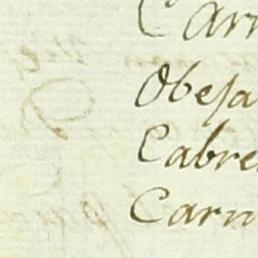 Carn
Obeja
Cabre
Carn